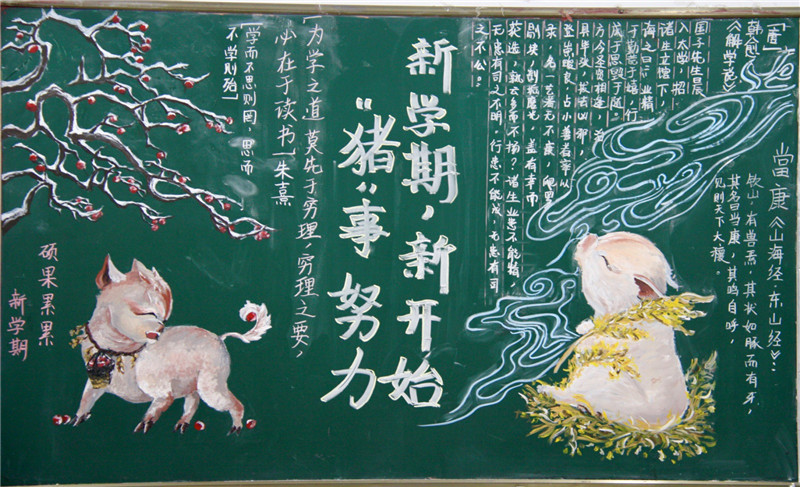 當康《山海经·东山经》:
钦山,有兽焉,其状如豚而有牙,
其名曰当康,其鸣自呼,
见则天下大穰。
韩愈
《解学说》
国子先生晨
入太学,招
诸生立馆下,
诲之曰:业精
于勤荒于嬉,行
成于思毁于随。
方今圣贤相逢,治
具毕张,拔去凶邪,
登崇畯良,占小善者率以
录,名一艺者无不庸,爬罗
剔抉,刮垢磨光,盖有幸而
获选,孰云多而不扬?诸生业患不能精,
无患有司之不明,行患不能成,无患有司
之不公。
新学期,新开始
“猪”事努力
「为学之道莫先于穷理,穷理之要,
必在于读书」朱熹
「学而不思则罔,思而
不学则殆」
硕果累累
新学期